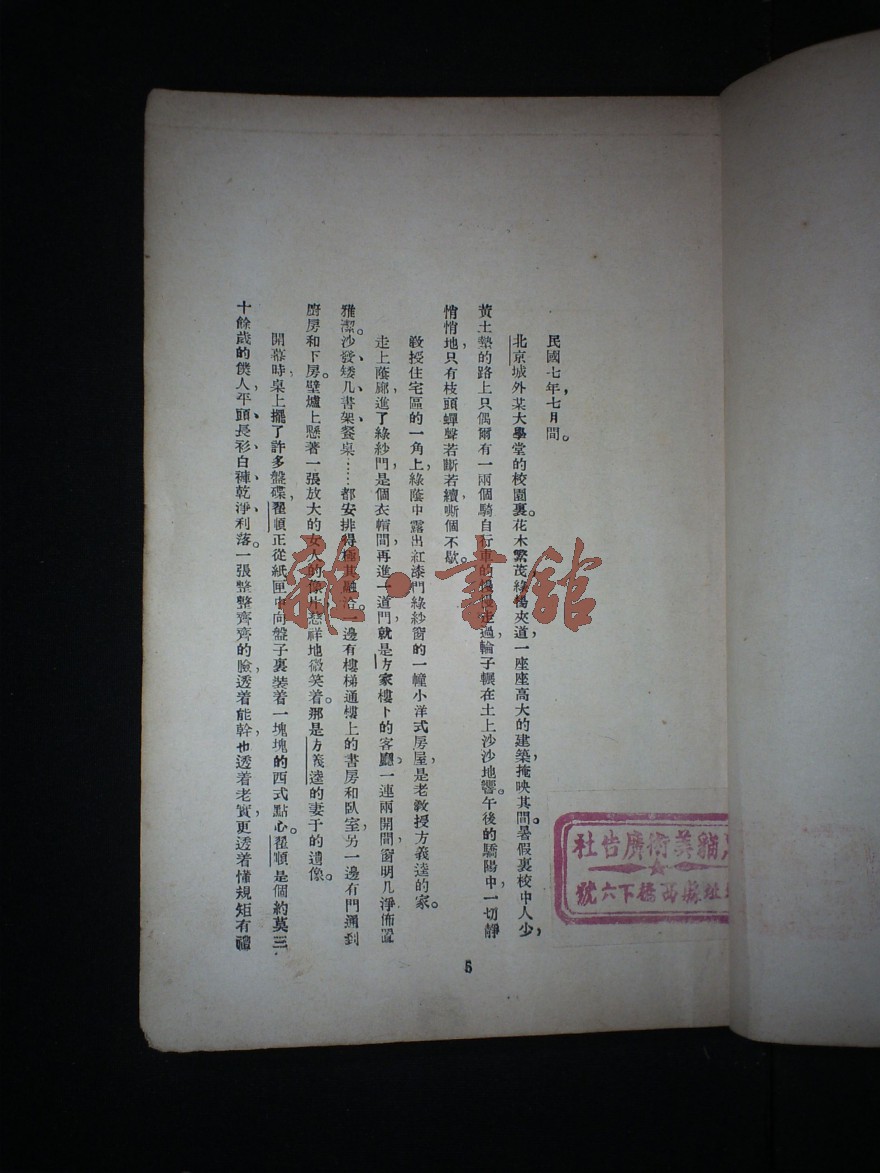 民國七年，七月間。
北京城外某大學堂的校園裏。花木繁茂，綠楊夾道，一座座高大的建築，掩映其間。暑假裏校中人少，
黃土墊的路上只偶爾有一兩個騎自行車的慢慢走過，輪子輾在土上沙沙地響。午後的驕陽中，一切靜
悄悄地，只有枝頭蟬聲若斷若續，嘶個不歇。
教授住宅區的一角上，綠蔭中露出紅漆門綠紗窗的一幢小洋式房屋，是老教授方義逵的家。
走上蔭廊，進了綠紗門，是個衣帽間，再進一道門，就是方家樓下的客廳。一連兩開間，窗明几淨，佈置
雅潔。沙發、矮几、書架、餐桌……都安排得極其融洽。一邊有樓梯通樓上的書房和臥室，另一邊有門通到
廚房和下房。壁爐上懸著一張放大的女人的像片，慈祥地微笑着。那是方義逵的妻子的遺像。
開幕時，桌上擺了許多盤碟，翟頓正從紙匣中向盤子裏裝着一塊塊的西式點心。翟頓是個約莫三
十餘歲的僕人，平頭、長衫、白褲、乾淨、利落。一張整整齊齊的臉，透着能幹，也透着老實，更透着懂規矩有禮
5
貓美術廣告社
址縣西橋下六號
雜·書館